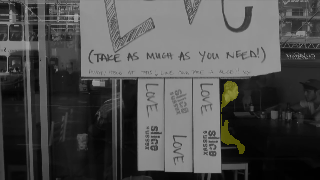 LOVE
(TAKE AS MUCH AS YOU NEED!)
LOVE
slice
SUSSEX
slice
SUSSEX
LOVE
LOVE
slice
SUSSEX